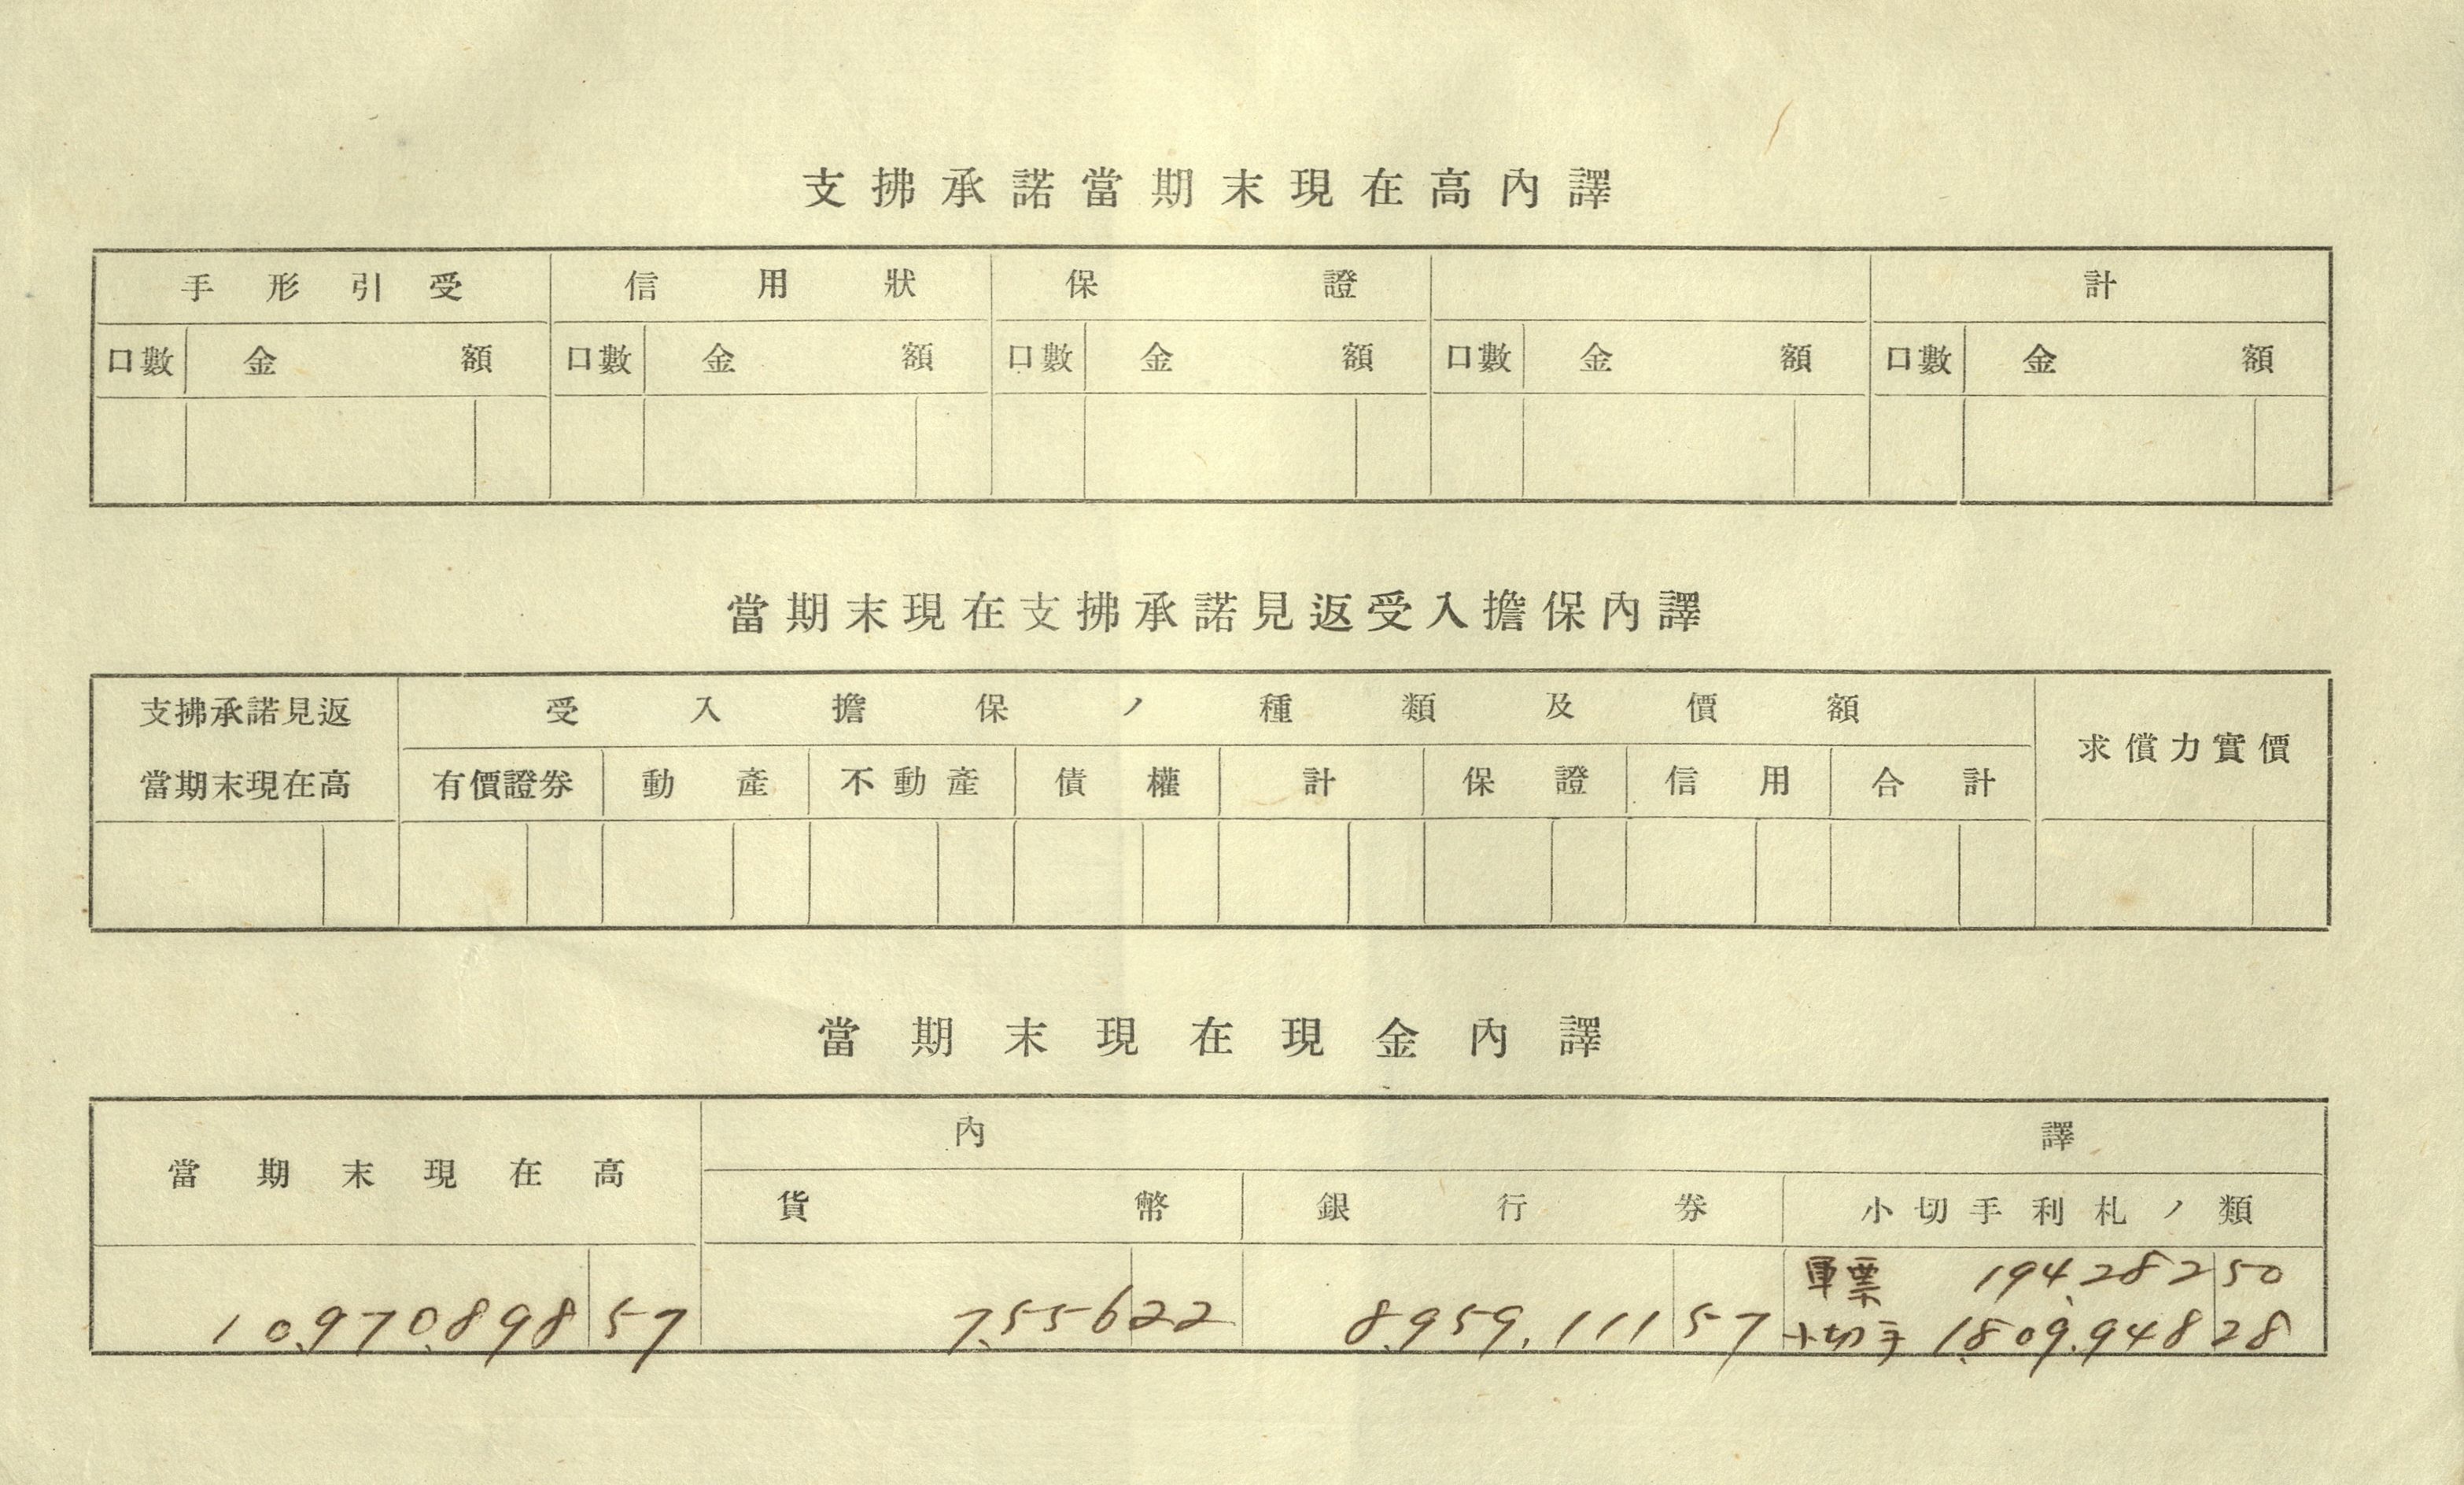 支拂承諾當期末現在高內譯
手形引受 信用狀 保證 計
口數 金額 口數 金額 口數 金額 口數 金額 口數 金額
當期末現在支拂承諾見返受入擔保內譯
支拂承諾見返 受入擔保ノ種類及價額
求償力實價
當期末現在高 有價證券 動產 不動產 債權 計 保證 信用 合計
當期末現在現金內譯
內譯
當期末現在高
貨幣 銀行券 小切手利札ノ類
軍票 194,282 50
10,970,898 57 7,556 22 8,959,111 57 小切手 1,809,948 28